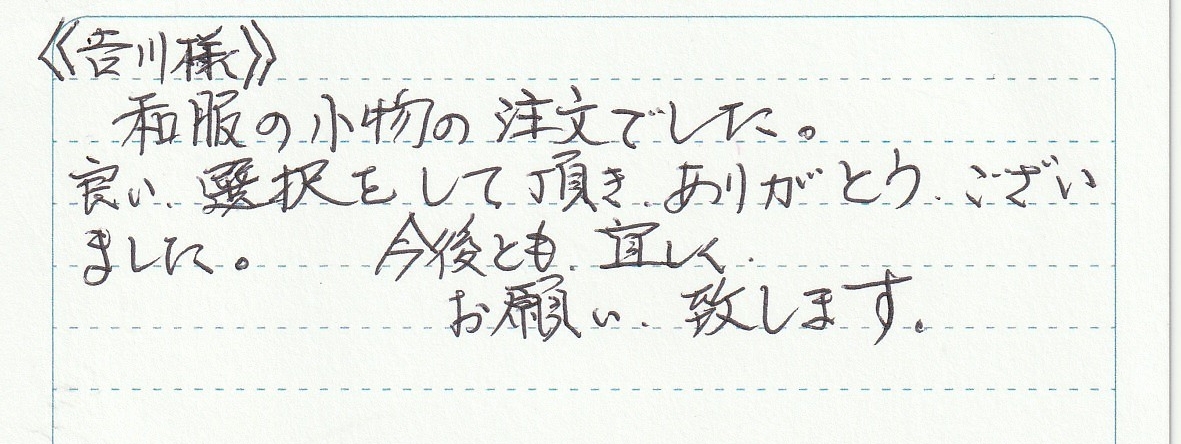 《吉川様》
和服の小物の注文でした。
良い、選択をして頂き、ありがとう、ござい
ました。 今後とも、宜しく、
お願い、致します。